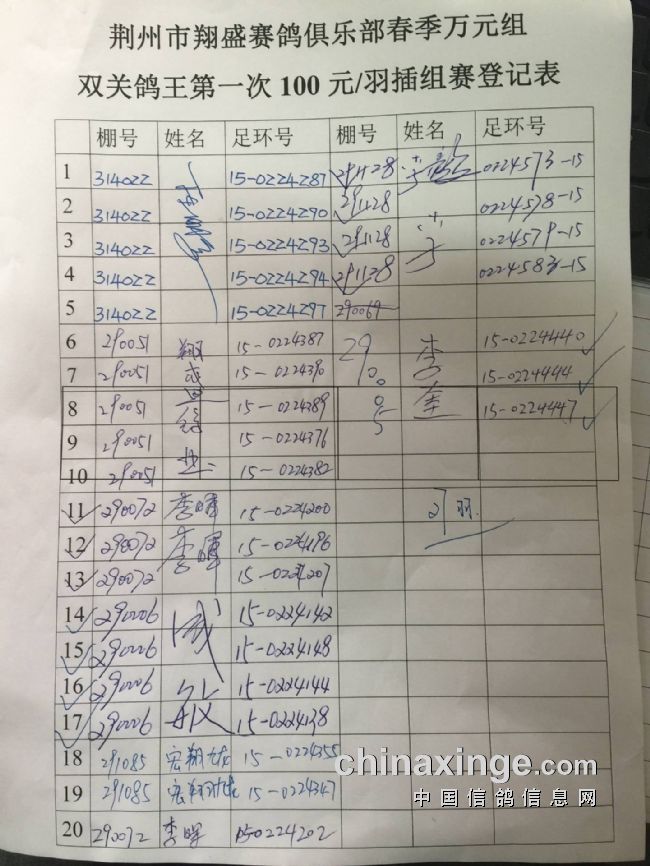 荆州市翔盛赛鸽俱乐部春季万元组
双关鸽王第一次 100 元/羽插组赛登记表
棚号 姓名 足环号 棚号 姓名 足环号
1 314022 15-0224287 291128 0224573-15
2 314022 15-0224290 291128 0224578-15
3 314022 15-0224293 291128 0224579-15
4 314022 15-0224294 291128 0224583-15
5 314022 15-0224297 290069
6 290051 翔 15-0224387 29 李 15-0224440
7 290051 15-0224390 15-0224444
8 290051 15-0224389 15-0224447
9 290051 15-0224376
10 290051 15-0224382
11 290072 李晖 15-0224200 27羽.
12 290072 李晖 15-0224196
13 290072 15-0224207
14 290006 15-0224142
15 290006 15-0224148
16 290006 15-0224144
17 290006 15-0224138
18 291085 宏翔 15-0224355
19 291085 宏翔 15-0224347
20 290072 李晖 150224202
chinaxinge.com
中国信鸽信息网